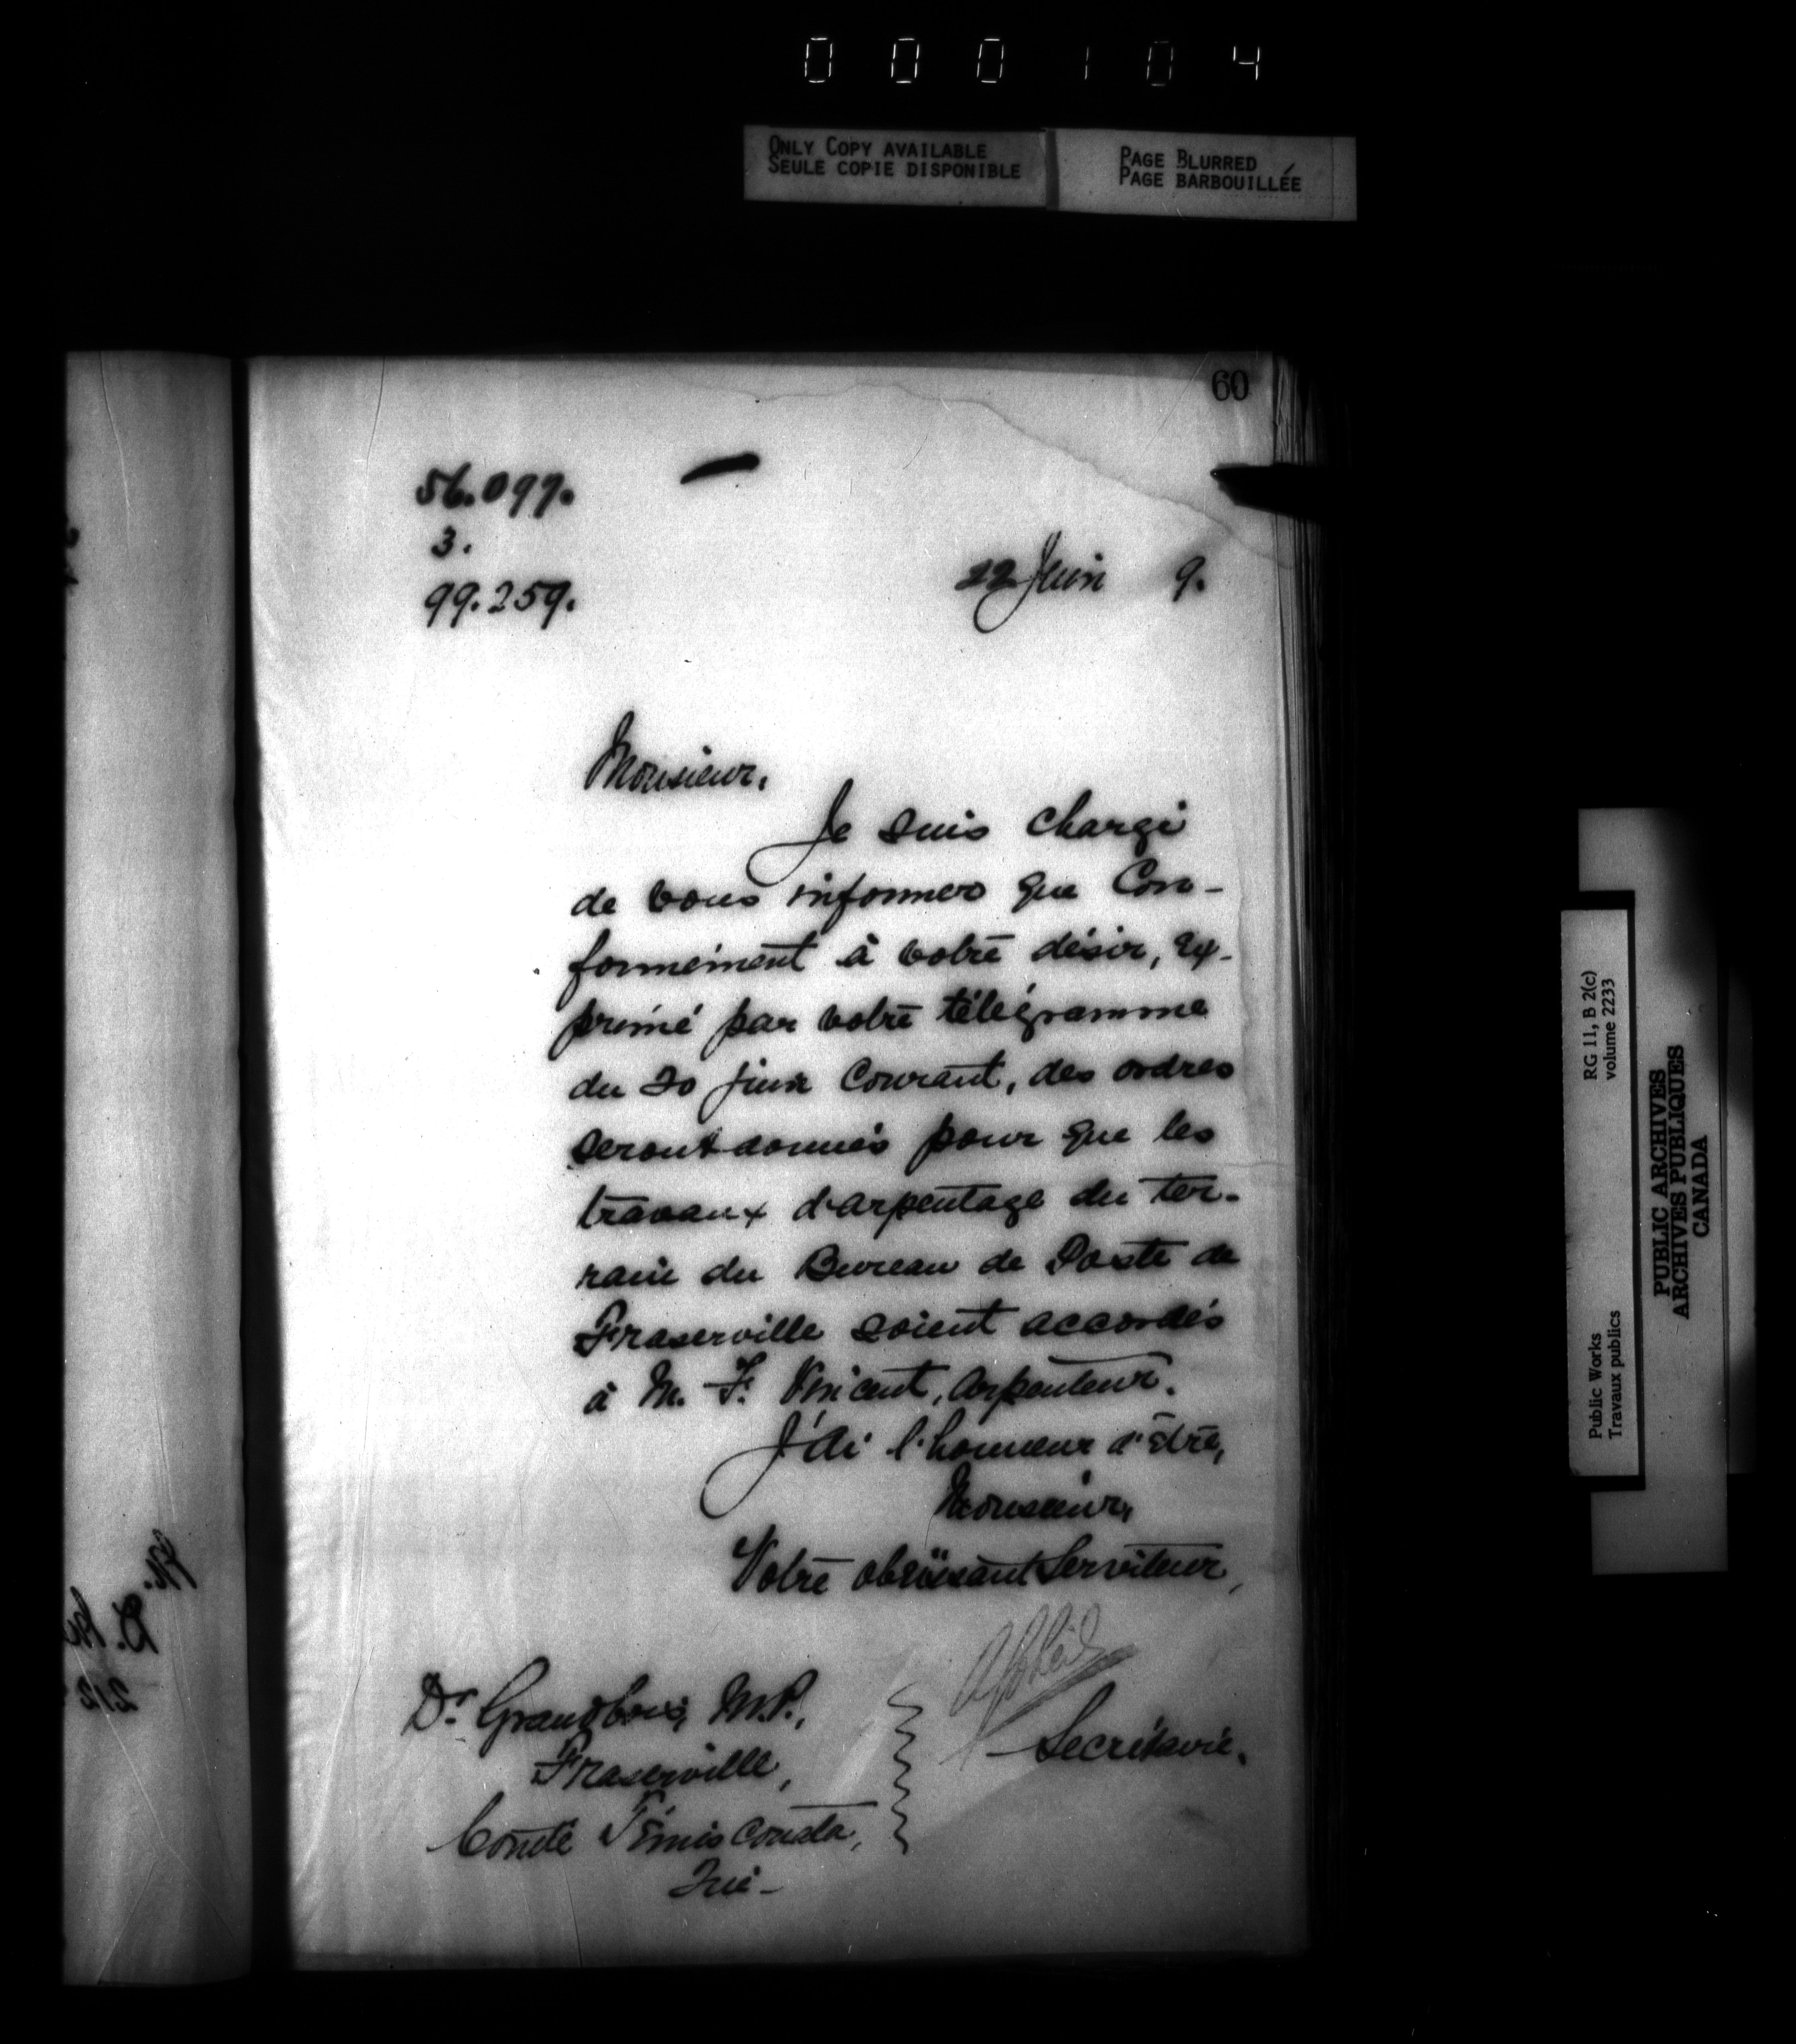 000104
ONLY COPY AVAILABLE
SEULE COPIE DISPONIBLE
PAGE BLURRED
PAGE BARBOUILLÉE
60
56.099.
3.
99.259.
22 Juin 9.
Monsieur,
Je suis chargé
de vous informer que Con-
formément à votre désir, ex-
primé par votre télégramme
du 20 juin Courant, des ordres
seront donnés pour que les
travaux d'arpentage du ter-
rain du Bureau de Poste de
Fraserville soient accordés
à M. F. Vincent, Arpenteur.
J'ai l'honneur d'être,
Monsieur,
Votre obéissant Serviteur,
Secrétaire.
Dr Grandbois, M.P.,
Fraserville,
Comté Témiscouata,
Qué-
RG 11, B 2(c)
volume 2233
Public Works
Travaux publics
PUBLIC ARCHIVES
ARCHIVES PUBLIQUES
CANADA